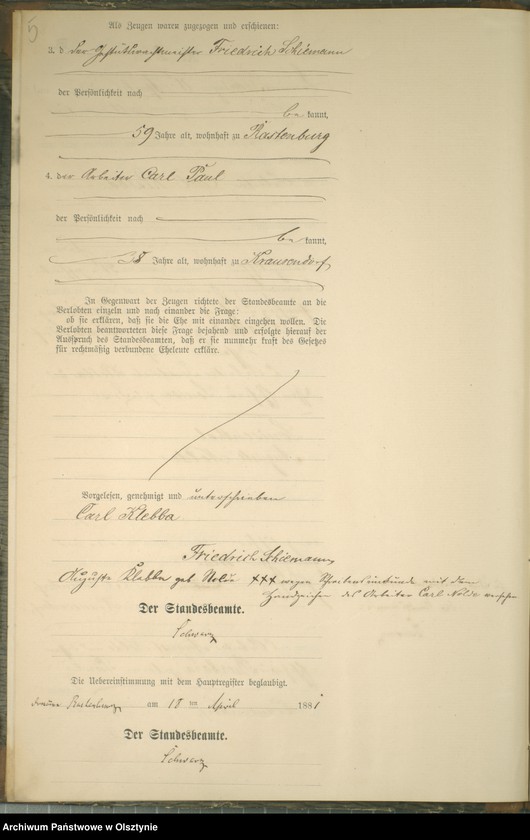 5
Als Zeugen waren zugezogen und erschienen:
3. d der Gestütswachtmeister Friedrich Schiemann
der Persönlichkeit nach
be kannt,
59 Jahre alt, wohnhaft zu Rastenburg
4. der Arbeiter Carl Paul
der Persönlichkeit nach
be kannt,
28 Jahre alt, wohnhaft zu Krausendorf
In Gegenwart der Zeugen richtete der Standesbeamte an die
Verlobten einzeln und nach einander die Frage:
ob sie erklären, daß sie die Ehe mit einander eingehen wollen. Die
Verlobten beantworteten diese Frage bejahend und erfolgte hierauf der
Ausspruch des Standesbeamten, daß er sie nunmehr kraft des Gesetzes
für rechtmäßig verbundene Eheleute erkläre.
Vorgelesen, genehmigt und unterschrieben
Carl Klebba
Friedrich Schiemann
Auguste Klebba geb Nolde XXX wegen Schreibensunkunde mit dem
Handzeichen des Arbeiter Carl Nolde versehen
Der Standesbeamte.
Schwarz
Die Uebereinstimmung mit dem Hauptregister beglaubigt.
Rastenburg am 18 ten April 1881
Der Standesbeamte.
Schwarz
Archiwum Państwowe w Olsztynie